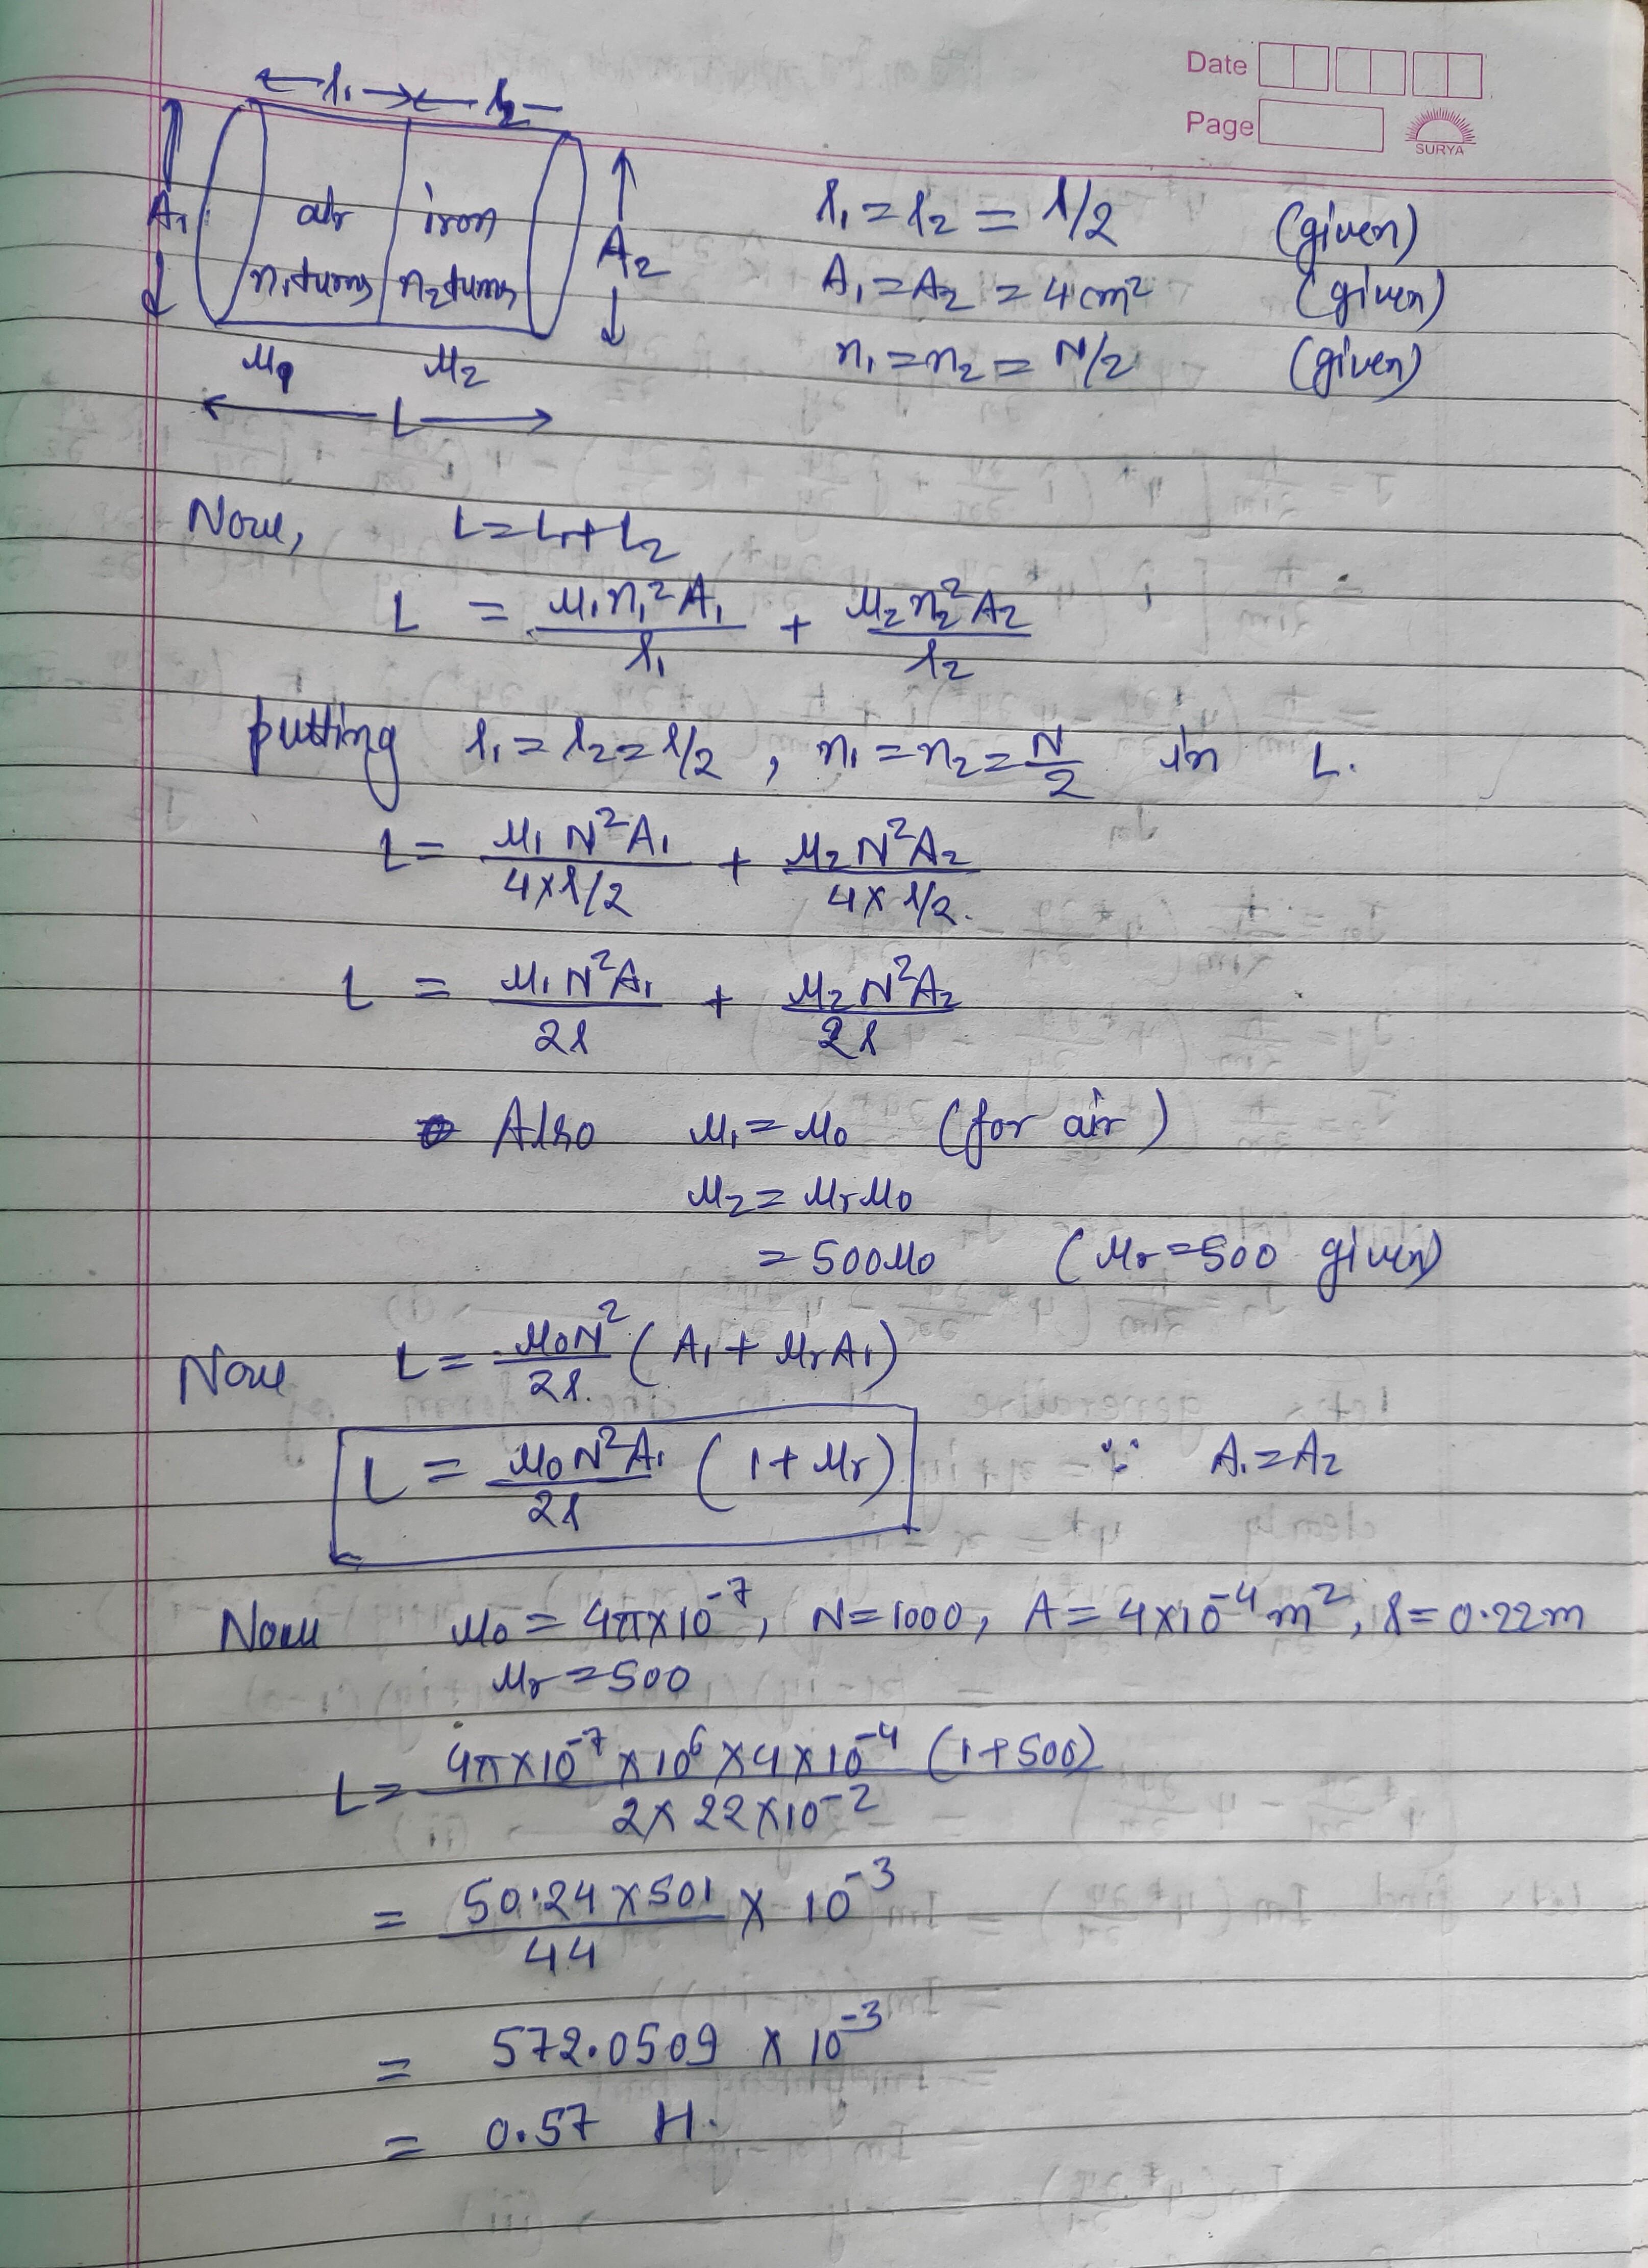 Date
Page
SURYA
← l₁ → ← l₂ –
A₁ air iron A₂
n₁turns n₂turns
μ₁ μ₂
← L →
l₁ = l₂ = l/2 (given)
A₁ = A₂ = 4cm² (given)
n₁ = n₂ = N/2 (given)
Now, L = L₁ + L₂
L = μ₁n₁²A₁/l₁ + μ₂n₂²A₂/l₂
putting l₁ = l₂ = l/2 , n₁ = n₂ = N/2 in L.
L = μ₁N²A₁/4×l/2 + μ₂N²A₂/4×l/2.
L = μ₁N²A₁/2l + μ₂N²A₂/2l
Also μ₁ = μ₀ (for air)
μ₂ = μrμ₀
= 500μ₀ (μr = 500 given)
Now L = μ₀N²/2l. (A₁ + μrA₁)
L = μ₀N²A₁/2l (1 + μr) ∵ A₁ = A₂
Now μ₀ = 4π×10⁻⁷, N = 1000, A = 4×10⁻⁴ m², l = 0.22m
μr = 500
L = 4π×10⁻⁷ × 10⁶ × 4×10⁻⁴ (1+500)/2×22×10⁻²
= 50.24×501/44 × 10⁻³
= 572.0509 × 10⁻³
= 0.57 H.